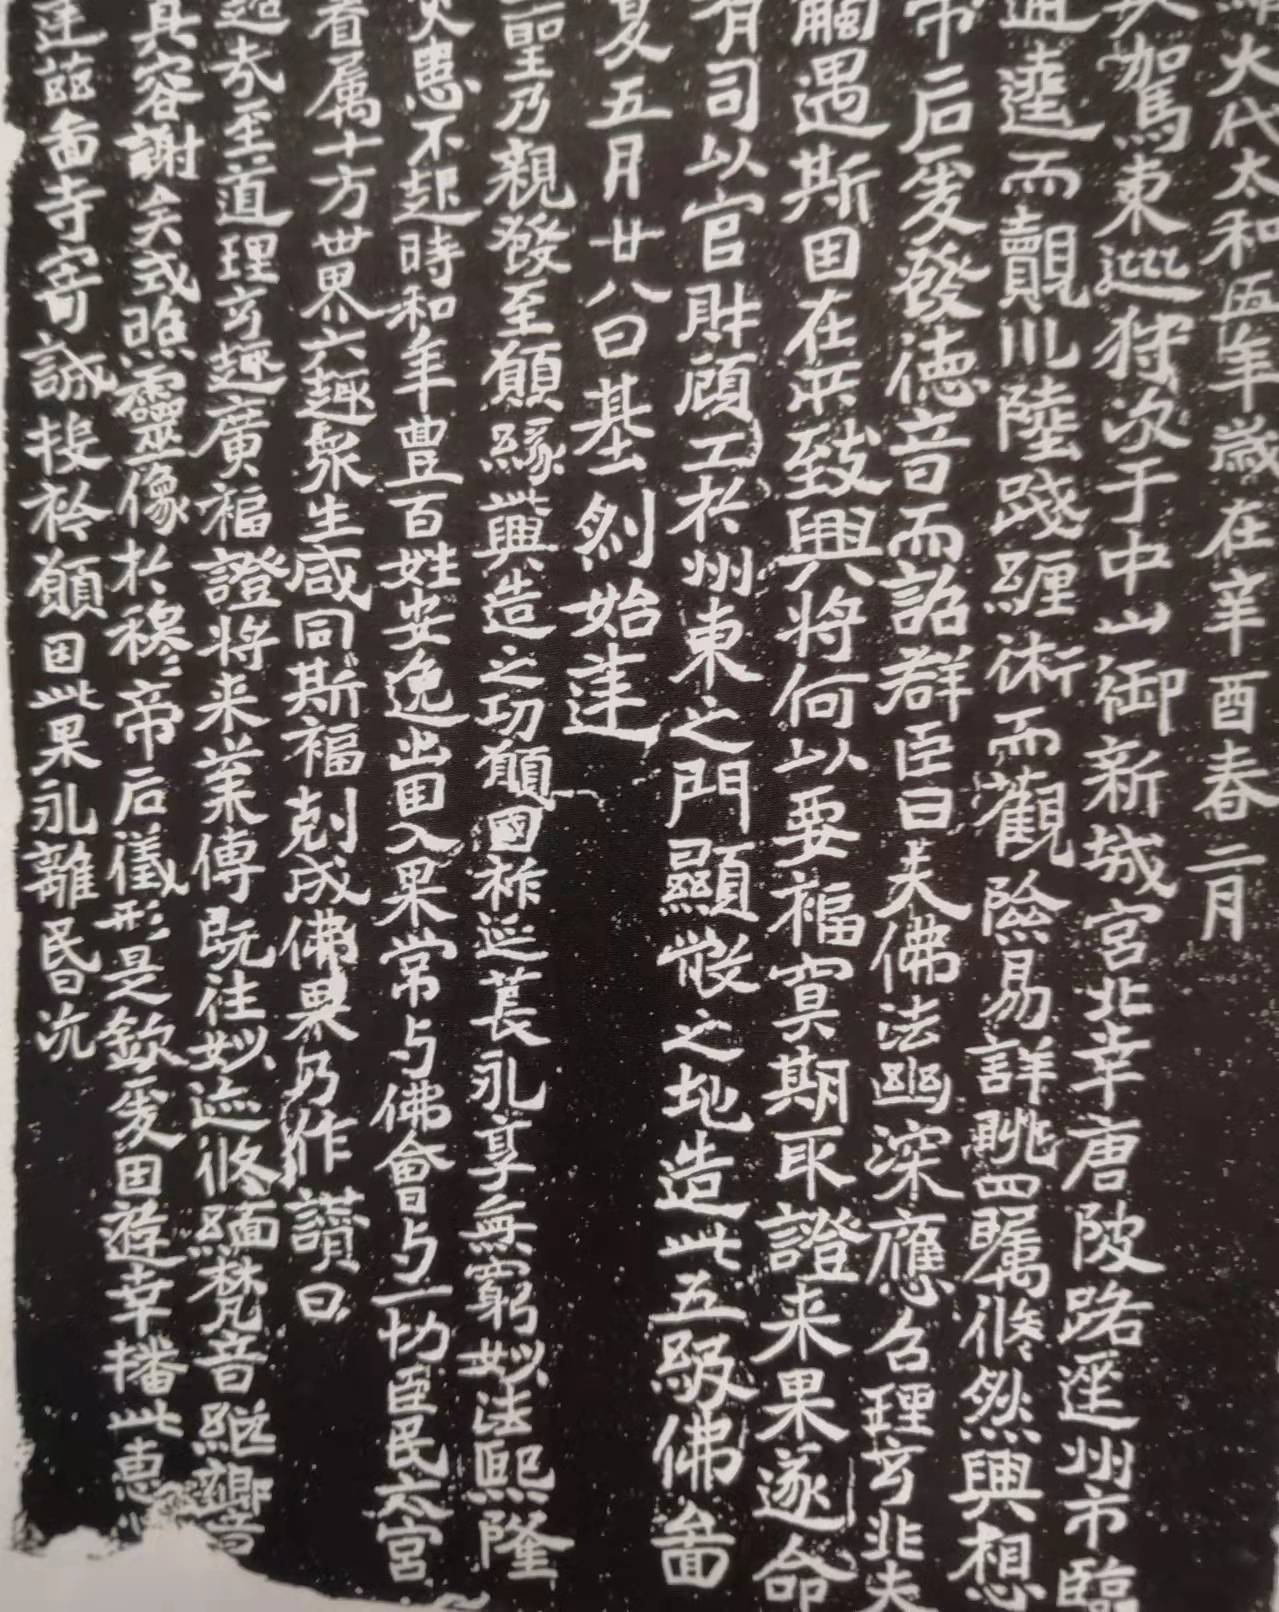 大代太和五年歲在辛酉春二月
駕東巡狩次于中山御新城宮北幸唐陂路逕州市臨
通逵而覿川陸踐纏術而觀險易詳眺四矚悠然興想
帝后爰發德音而詔群臣曰夫佛法幽深應召理玄非夫
觸遇斯田在茲致興將何以要福冥期取證来果遂命
有司以官財顧工於州東之門顯敞之地造此五級佛啚
夏五月廿八日基創始建
二聖乃親發至願緣此興造之功願國祚延萇永享無窮妙法熙隆
灾患不起時和年豊百姓安逸出因入果常与佛會与一切臣民六宮
眷属十方世界六趣衆生咸同斯福剋成佛果乃作讚曰
超哉至道理玄趣廣福證將来業傅既往妙迹悠緬梵音継響
真容謝矣式照靈像於穆帝后儀形是欽爰因遊幸播此惠
建茲啚寺寄誠投於願因此果永離昬沉